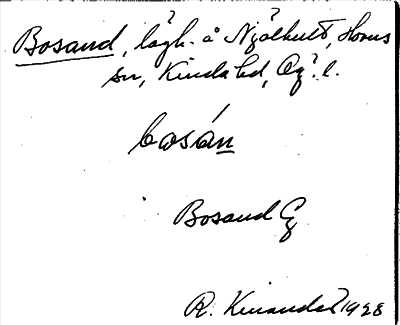 Bosand, lägh. å Nyalhult, Horns
sn, Kinda hd, Ög. l.
bosán
Bosand Eg
R. Kinander 1928